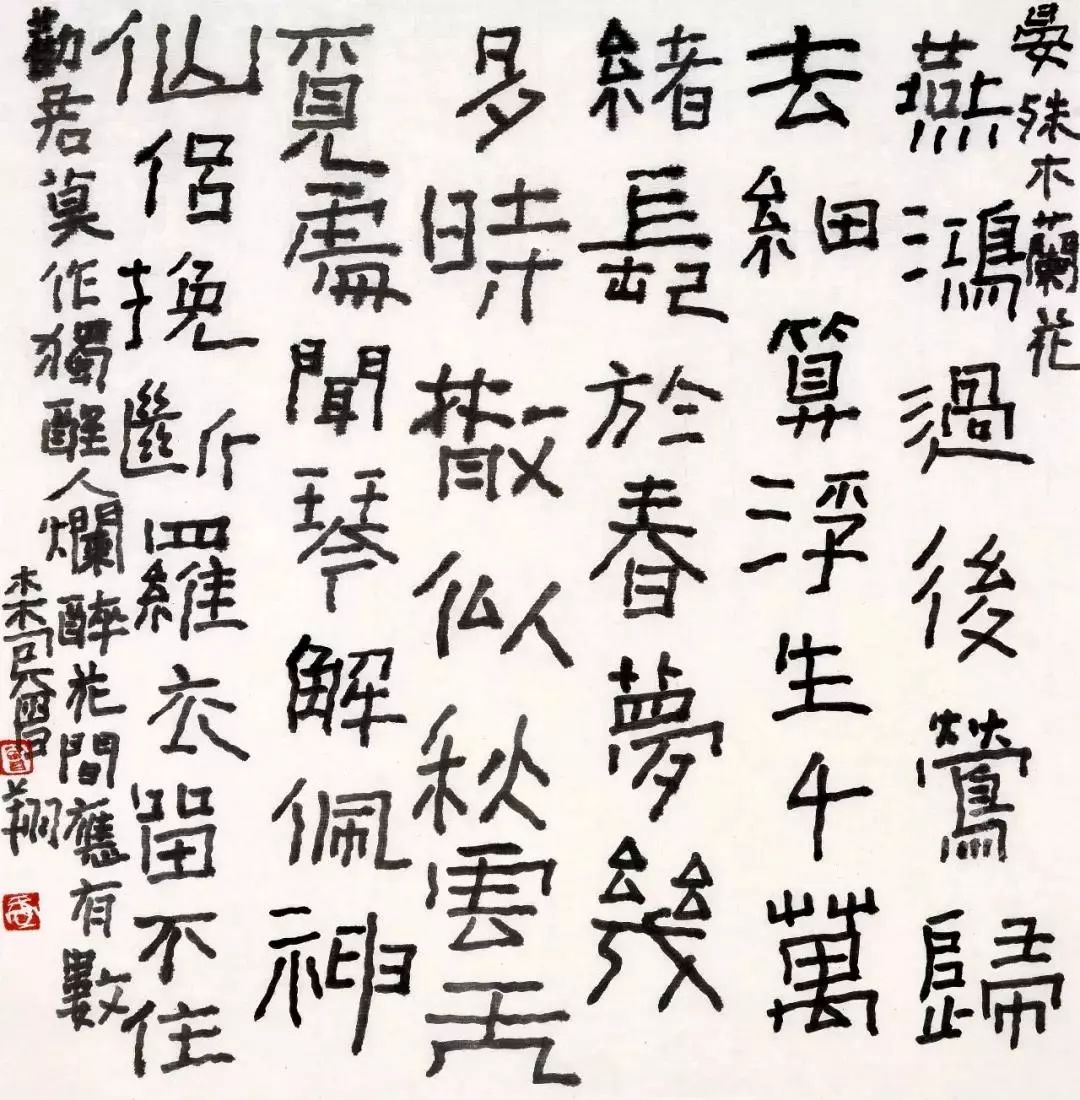 晏殊木蘭花
燕鴻過後鶯歸
去細算浮生千萬
緒長於春夢幾
多時散似秋雲无
覓處聞琴解佩神
仙侶挽斷羅衣畱不住
勸君莫作獨醒人爛醉花間應有數
曾翔